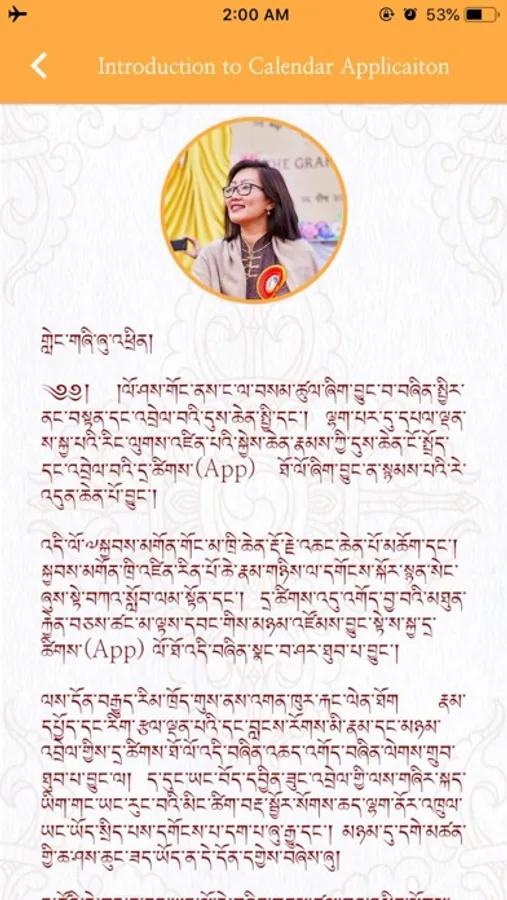 2:00 AM
53%
Introduction to Calendar Applicaiton
THE GRAN
གླེང་གཞི་ཞུ་འཕྲིན།
༄༅། །ལོ་ཤས་གོང་ནས་ང་ལ་བསམ་ཚུལ་ཞིག་བྱུང་བ་བཞིན་སྤྱིར་
ནང་བསྟན་དང་འབྲེལ་བའི་དུས་ཆེན་སྤྱི་དང་། ལྷག་པར་དུ་དཔལ་ལྡན་
ས་སྐྱ་པའི་རིང་ལུགས་འཛིན་པའི་སྐྱེས་ཆེན་རྣམས་ཀྱི་དུས་ཆེན་ངོ་སྤྲོད་
དང་འབྲེལ་བའི་དྲ་ཚིགས་(App) ཐོ་ལོ་ཞིག་བྱུང་ན་སྙམས་པའི་རེ་
འདུན་ཆེན་པོ་བྱུང་།
འདི་ལོ་༧སྐྱབས་མགོན་གོང་མ་ཁྲི་ཆེན་རྡོ་རྗེ་འཆང་ཆེན་པོ་མཆོག་དང་།
སྐྱབས་མགོན་ཁྲི་འཛིན་རིན་པོ་ཆེ་རྣམ་གཉིས་ལ་དགོངས་སྐོར་སྙན་སེང་
ཞུས་ཏེ་བཀའ་སློབ་ལམ་སྟོན་དང་། དྲ་ཚིགས་འདུ་འགོད་བྱ་བའི་མཐུན་
རྐྱེན་བཅས་ཚང་མ་ལྟས་དབང་གིས་མཉམ་འཛོམས་བྱུང་སྟེ་ས་སྐྱ་དྲ་
ཚིགས་(App) ལོ་ཐོ་འདི་བཞིན་སྣང་བ་ཤར་ཐུབ་པ་བྱུང་།
ལས་དོན་བརྒྱུད་རིམ་ཁྲོད་གུས་ནས་འགན་ཁུར་རྐང་ལེན་ཐོག རྣམ་
དཔྱོད་དང་རིག་རྩལ་ལྡན་པའི་དང་བླངས་རོགས་མི་རྣམ་དང་མཉམ་
འབྲེལ་གྱིས་དྲ་ཚིགས་ཐོ་ལོ་འདི་བཞིན་འཆད་འགོད་བཞིན་ལེགས་གྲུབ་
ཐུབ་པ་བྱུང་ལ། ད་དུང་ཡང་བོད་དབྱིན་ཟུང་འབྲེལ་གྱི་ལས་གཞིར་སྐད་
ཡིག་གང་ཡང་རུང་བའི་མིང་ཚིག་བརྡ་སྦྱོར་སོགས་ཆད་ལྷག་ནོར་འཁྲུལ་
ཡང་ཡོད་སྲིད་པས་དགོངས་པ་དག་པ་ཞུ་རྒྱུ་དང་། མཉམ་དུ་དགེ་མཚན་
གྱི་ཆ་ཤས་ཆུང་ཟད་ཡོད་ན་དེ་དོན་དགྱེས་བཞེས་ཞུ།